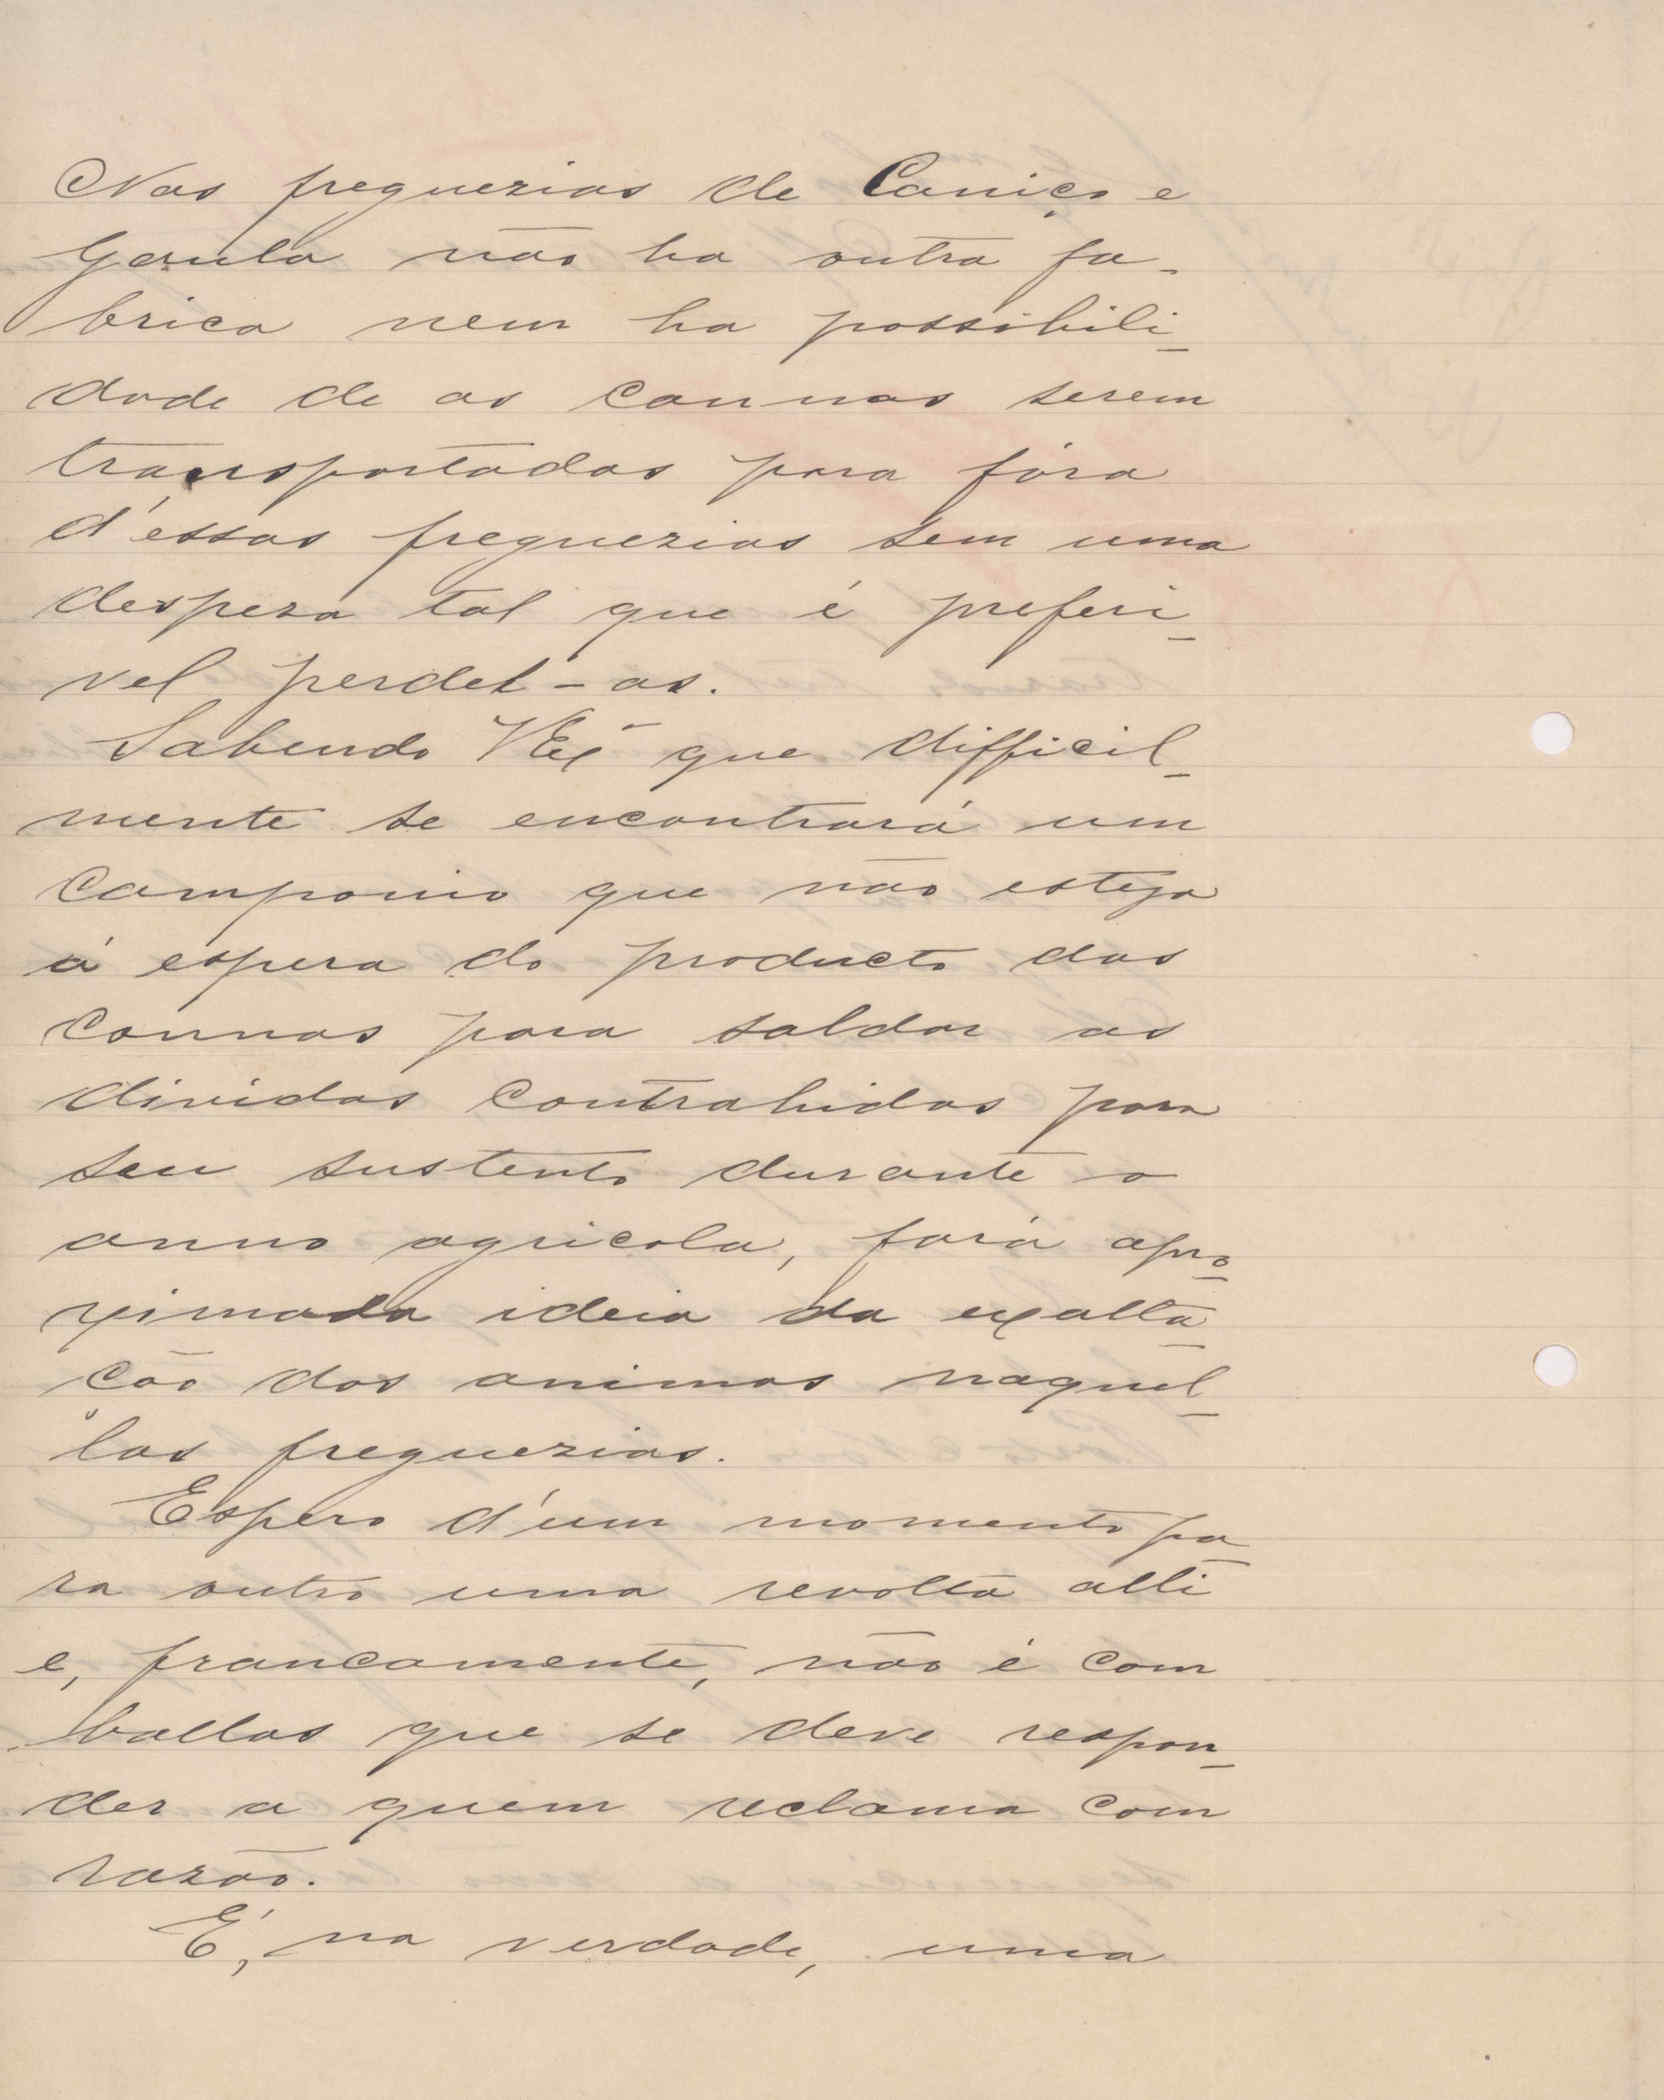 Nas freguezias de Caniço e
Gaula não ha outra fa-
brica nem ha possibili-
dade de as cannas serem
transportadas para fóra
d'essas freguezias sem uma
despeza tal que é preferi-
vel perdel-as.
Sabendo VEx.ª que difficil-
mente se encontrará um
camponio que não esteja
á espera do producto das
cannas para saldar as
dividas contrahidas para
seu sustento durante o
anno agricola, fará apro-
ximada ideia da exalta-
ção dos animos naquel-
las freguezias.
Espero d'um momento pa-
ra outro uma revolta alli
e, francamente, não é com
ballas que se deve respon-
der a quem reclama com
razão.
É, na verdade, uma